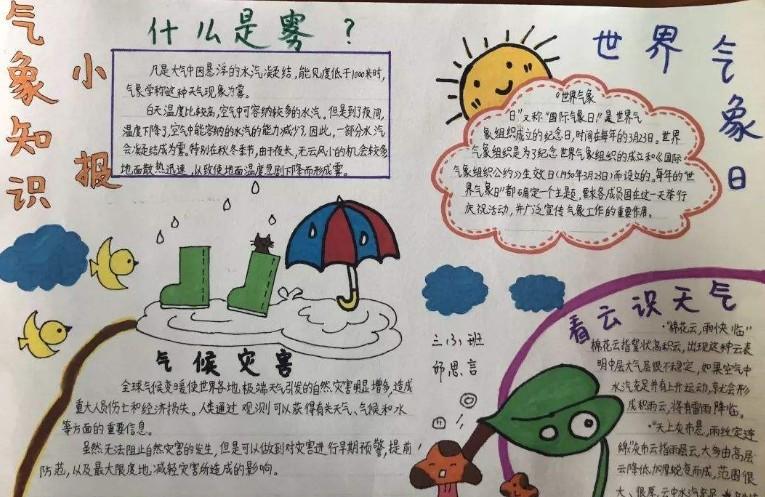 气象知识
小报
什么是雾？
凡是大气中因悬浮的水汽凝结，能见度低于1000米时，
气象学称这种天气现象为雾。
白天温度比较高，空气中可容纳较多的水汽。但是到了夜间，
温度下降了，空气中能容纳的水汽的能力减少了，因此，一部分水汽
会凝结成为雾。特别在秋冬季节，由于夜长，无云风小的机会较多，
地面散热迅速，以致使地面温度急剧下降而形成雾。
世界气象日
"世界气象
日"又称"国际气象日"是世界气
象组织成立的纪念日，时间在每年的3月23日。世界
气象组织是为了纪念世界气象组织的成立和《国际
气象组织公约》生效日(1950年3月23日)而设立的。每年的"世
界气象日"都确定一个主题，要求各成员国在这一天举行
庆祝活动，并广泛宣传气象工作的重要作用。
气候灾害
全球气候变暖使世界各地，极端天气引发的自然灾害明显增多，造成
重大人员伤亡和经济损失。人类通过观测可以获得有关天气、气候和水
等方面的重要信息。
虽然无法阻止自然灾害的发生，但是可以做到对灾害进行早期预警，提前
防范，以及最大限度地减轻灾害所造成的影响。
三(3)班
思言
看云识天气
·"棉花云，雨快临"
棉花云指絮状高积云，出现这种云表
明中层大气层很不稳定，如果空气中
水汽充足并有上升运动，就会形
成积雨云，将有雷雨降临。
·"天上灰布悬，雨丝定连
绵"灰布云指雨层云，大多由高层
云降低加厚蜕变而成，范围很
大、很厚，云中水汽充足